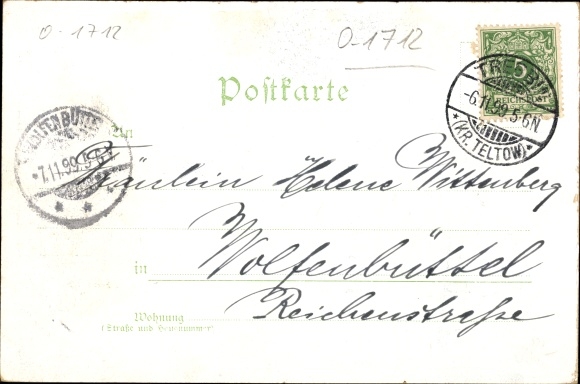 0-1712
0-1712
Postkarte
5
REICHSPOST
TREBBIN
-6.11.99.5-6N
*(KR. TELTOW)*
WOLFENBÜTTEL
*7.11.99.
An
Fräulein Helene Wittenberg
in Wolfenbüttel
Reichenstraße
Wohnung
(Straße und Hausnummer)